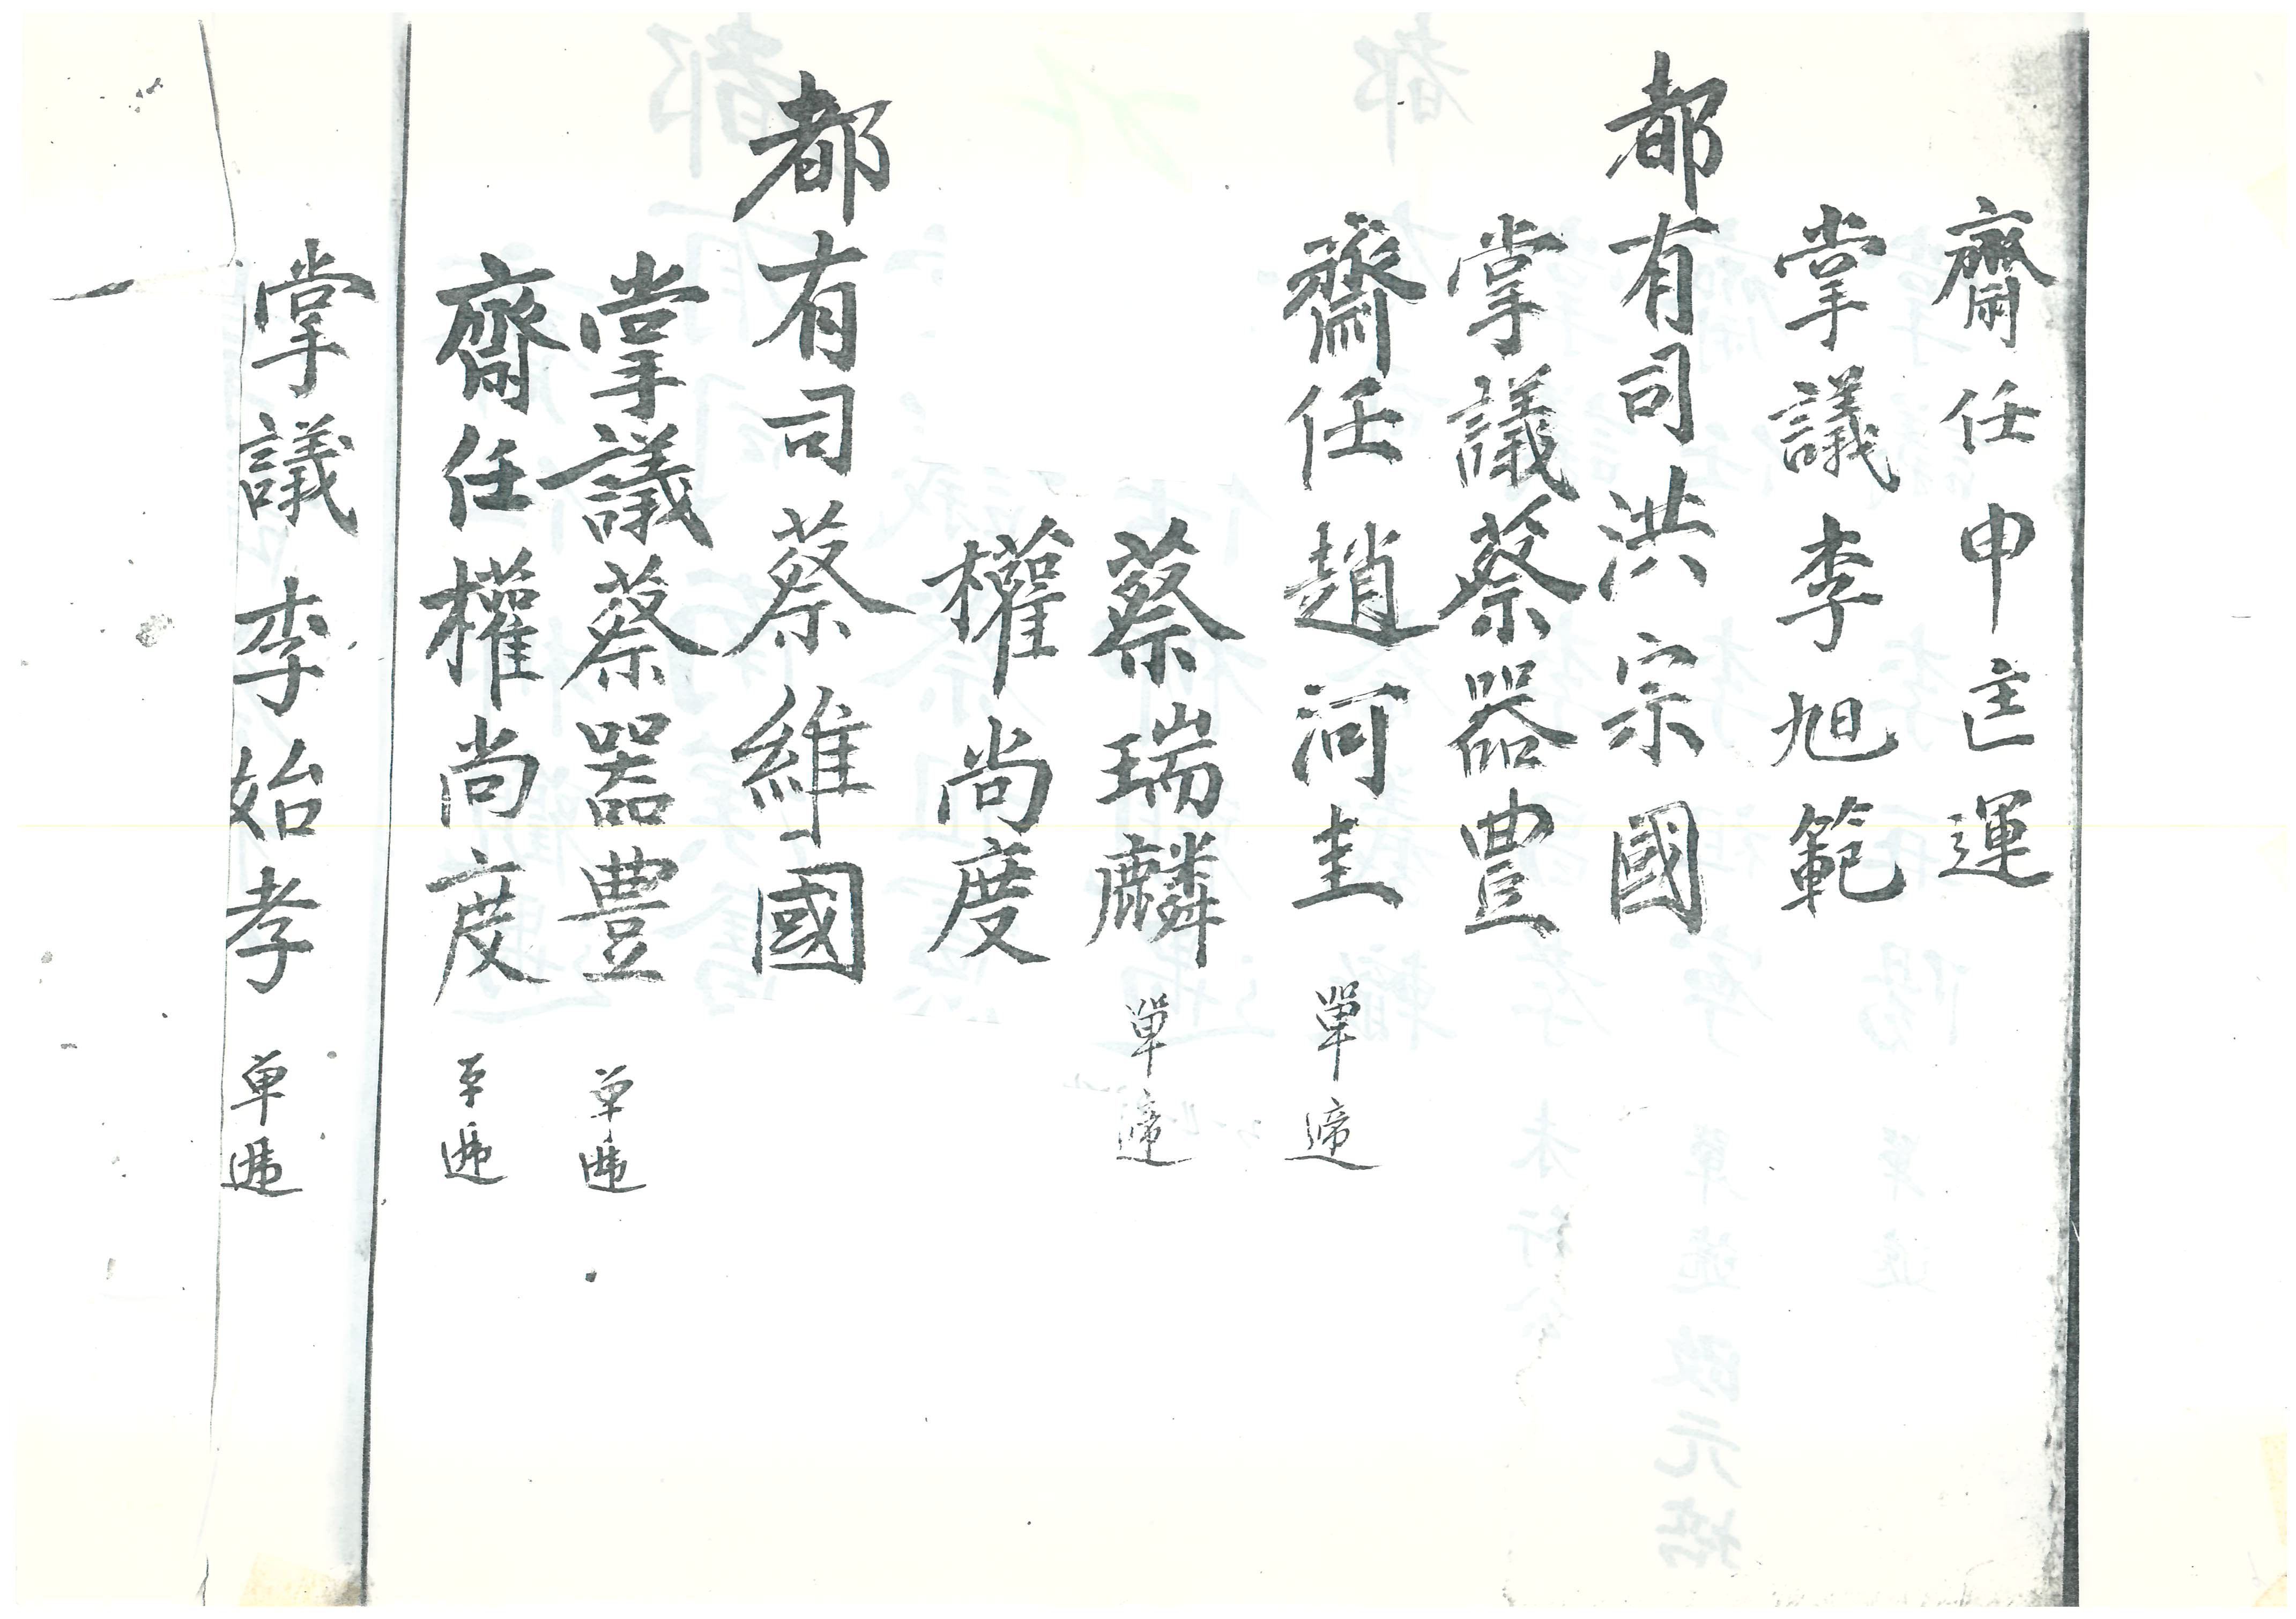 齋任申匡運
掌議李旭範
都有司洪宗國
掌議蔡器豊
齋任趙河圭 單遞
蔡瑞麟 單遞
權尚度
都有司蔡維國
掌議蔡器豊 単遞
齋任權尚度 単遞
掌議李始孝 単遞